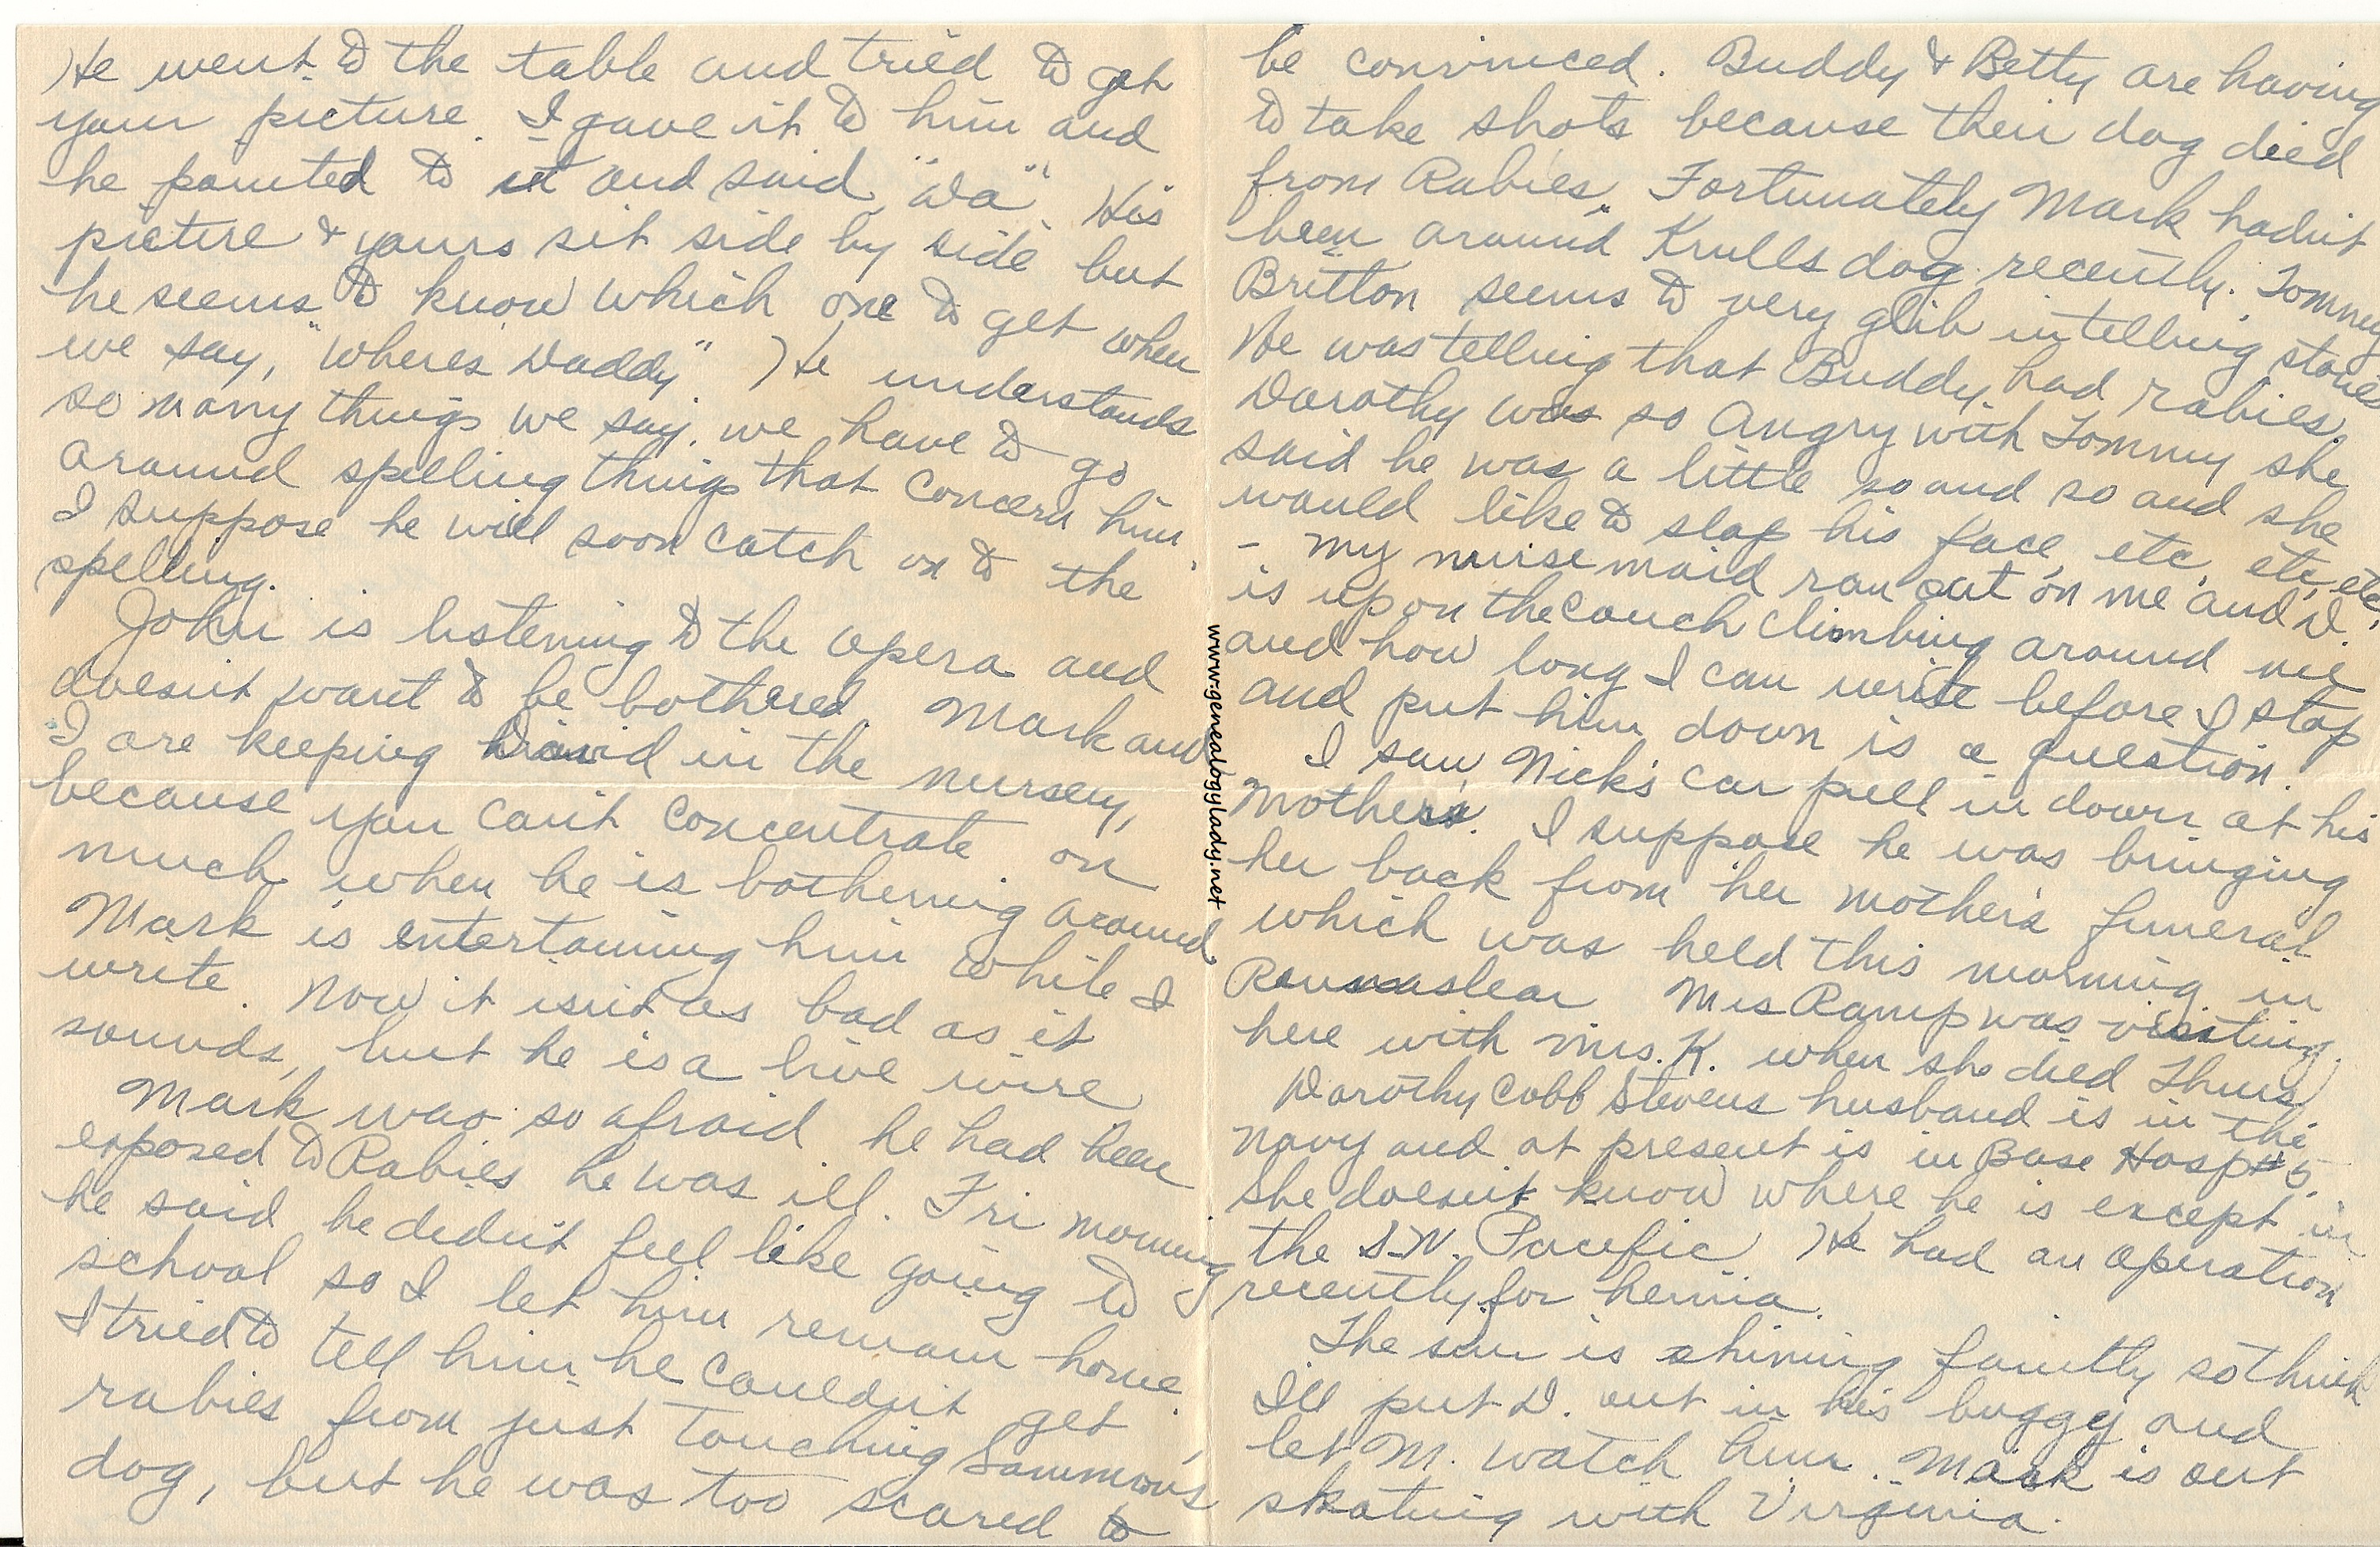 He went to the table and tried to get
your picture. I gave it to him and
he pointed to it and said "da". His
picture & yours sit side by side but
he seems to know which one to get when
we say, "Wheres Daddy" He understands
so many things we say. we have to go
around spelling things that concern him.
I suppose he will soon catch on to the
spelling.
John is listening to the opera and
doesn't want to be bothered. Mark and
I are keeping David in the nursery,
because you can't concentrate on
much when he is bothering around
Mark is entertaining him while I
write. Now it isn't as bad as it
sounds, but he is a live wire
Mark was so afraid he had been
exposed to Rabies he was ill. Fri morning
he said he didn't feel like going to
school so I let him remain home.
I tried to tell him he couldn't get
rabies from just touching Sammons
dog, but he was too scared to
be convinced. Buddy & Betty are having
to take shots because their dog died
from Rabies. Fortunately Mark hadn't
been around Krulls dog recently. Tommy
Britton seems to very glib in telling stories
He was telling that Buddy had rabies.
Dorothy was so angry with Tommy she
said he was a little so and so and she
would like to slap his face, etc, etc, etc.
- My nurse maid ran out on me and D.
is up on the couch climbing around me
and how long I can write before I stop
and put him down is a question.
I saw Nick's car pull in down at his
Mother's. I suppose he was bringing
her back from her mother's funeral
which was held this morning in
Mrs Ramp was visiting
here with Mrs. K. when she died Thurs.
Dorothy Cobb Stevens husband is in the
Navy and at present is in Base Hosp #5.
She doesn't know where he is except in
the S.W. Pacific He had an operation
recently for hernia.
The sun is shining faintly so think
I'll put D. out in his buggy and
let M. watch him. Mark is out
skating with Virginia.
www.genealogylady.net